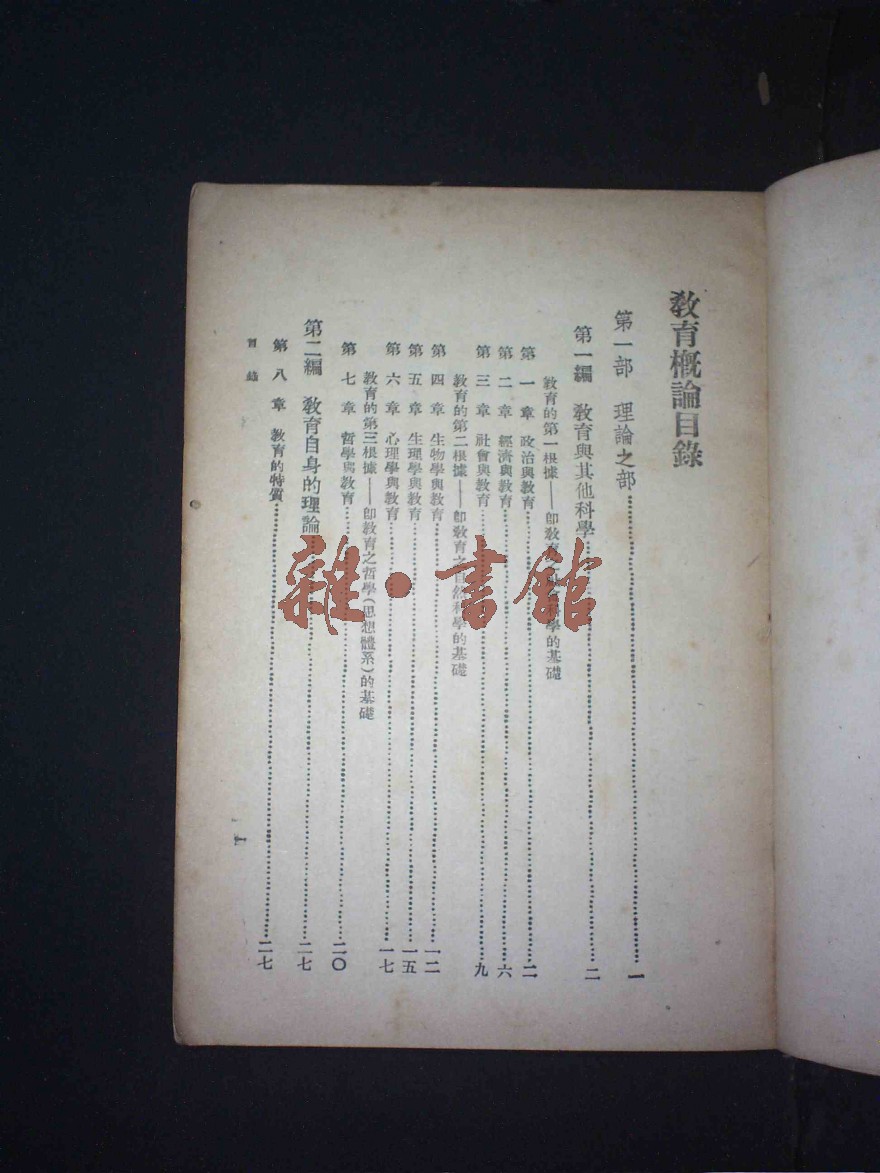 教育概論目錄
第一部 理論之部……一
第一編 教育與其他科學……二
教育的第一根據——卽教育之社會科學的基礎
第一章 政治與教育……二
第二章 經濟與教育……六
第三章 社會與教育……九
教育的第二根據——卽教育之自然科學的基礎
第四章 生物學與教育……一二
第五章 生理學與教育……一五
第六章 心理學與教育……一七
教育的第三根據——卽教育之哲學(思想體系)的基礎
第七章 哲學與教育……二〇
第二編 教育自身的理論……二七
第八章 教育的特質……二七
目錄
雜·書館